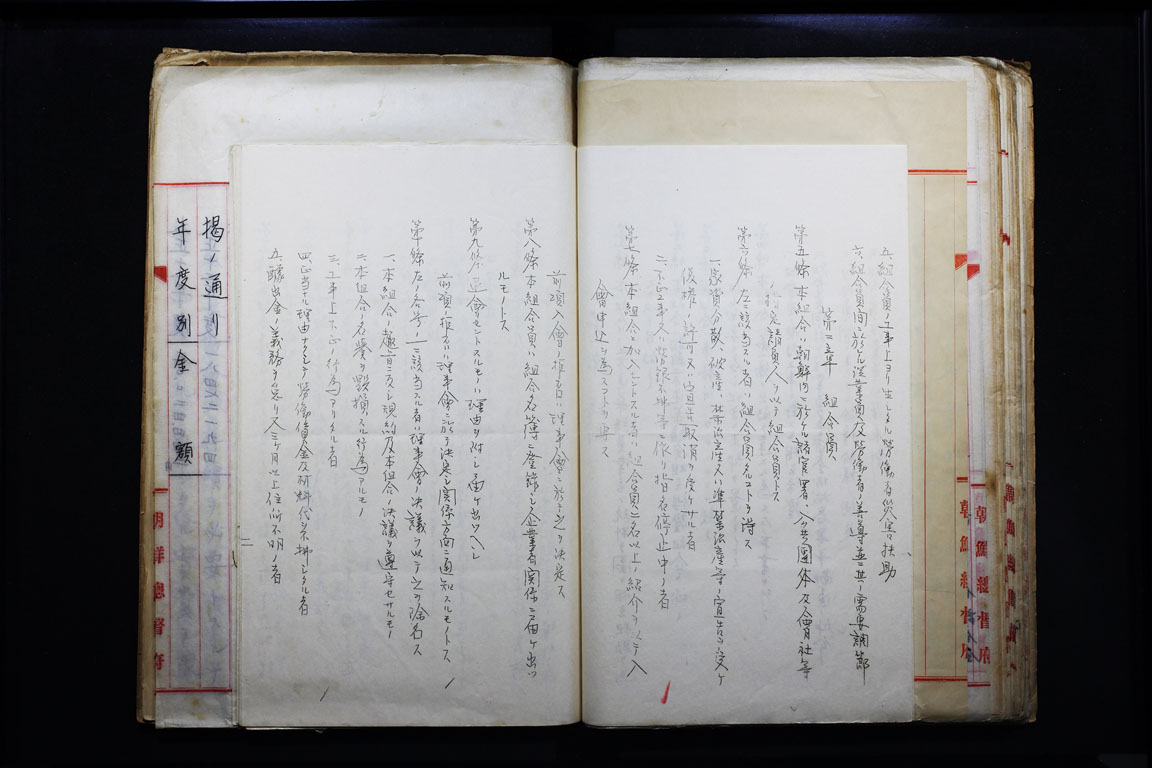 五、組合員ノ工事上ヨリ生シタル労働者災害扶助
六、組合員間ニ於ケル従業員及労働者ノ善導並ニ其ノ需要調節
第二章 組合員
第五條 本組合ハ朝鮮内ニ於ケル諸官署、公共團体及會社等
ノ指定請負人ヲ以テ組合員トス
第六條 左ニ該当スル者ハ組合員タルコトヲ得ス
一、家資分散、破産、禁治産又ハ準禁治産等ノ宣告ヲ受ケ
復権ノ許可又ハ宣告取消ヲ受ケサル者
二、不正工事又ハ賃銀不拂等ニ依リ指名停止中ノ者
第七條 本組合ニ加入セントスル者ハ組合員二名以上ノ紹介ヲ以テ入
會申込ヲ為スコトヲ要ス
前項入會ノ拒否ハ理事會ニ於テ之ヲ決定ス
第八條 本組合員ハ組合名簿ニ登録シ企業者関係ニ届ケ出ツ
ルモノトス
第九條 退會セントスルモノハ理由ヲ附シ届ケ出ツヘシ
前項ノ拒否ハ理事會ニ於テ決定シ関係方面ニ通知スルモノトス
第十條 左ノ各号ノ一ニ該当スル者ハ理事會ノ決議ヲ以テ之ヲ除名ス
一、本組合ノ趣旨ニ反シ規約及本組合ノ決議ヲ遵守セサルモノ
二、本組合ノ名譽ヲ毀損スル行為アルモノ
三、工事上不正ノ行為アリタル者
四、正当ナル理由ナクシテ労働賃金及材料代ヲ不拂シタル者
五、醵出金ノ義務ヲ怠リ又三ヶ月以上住所不明ノ者
二
掲ノ通リ
年度別金額
朝鮮總督府
朝鮮總督府
朝鮮總督府